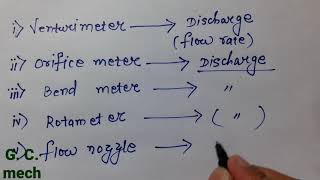 i) Venturimeter → Discharge
(flow rate)
ii) Orifice meter → Discharge
iii) Bend meter → "
iv) Rotameter → ( " )
v) flow nozzle →
G. C.
mech